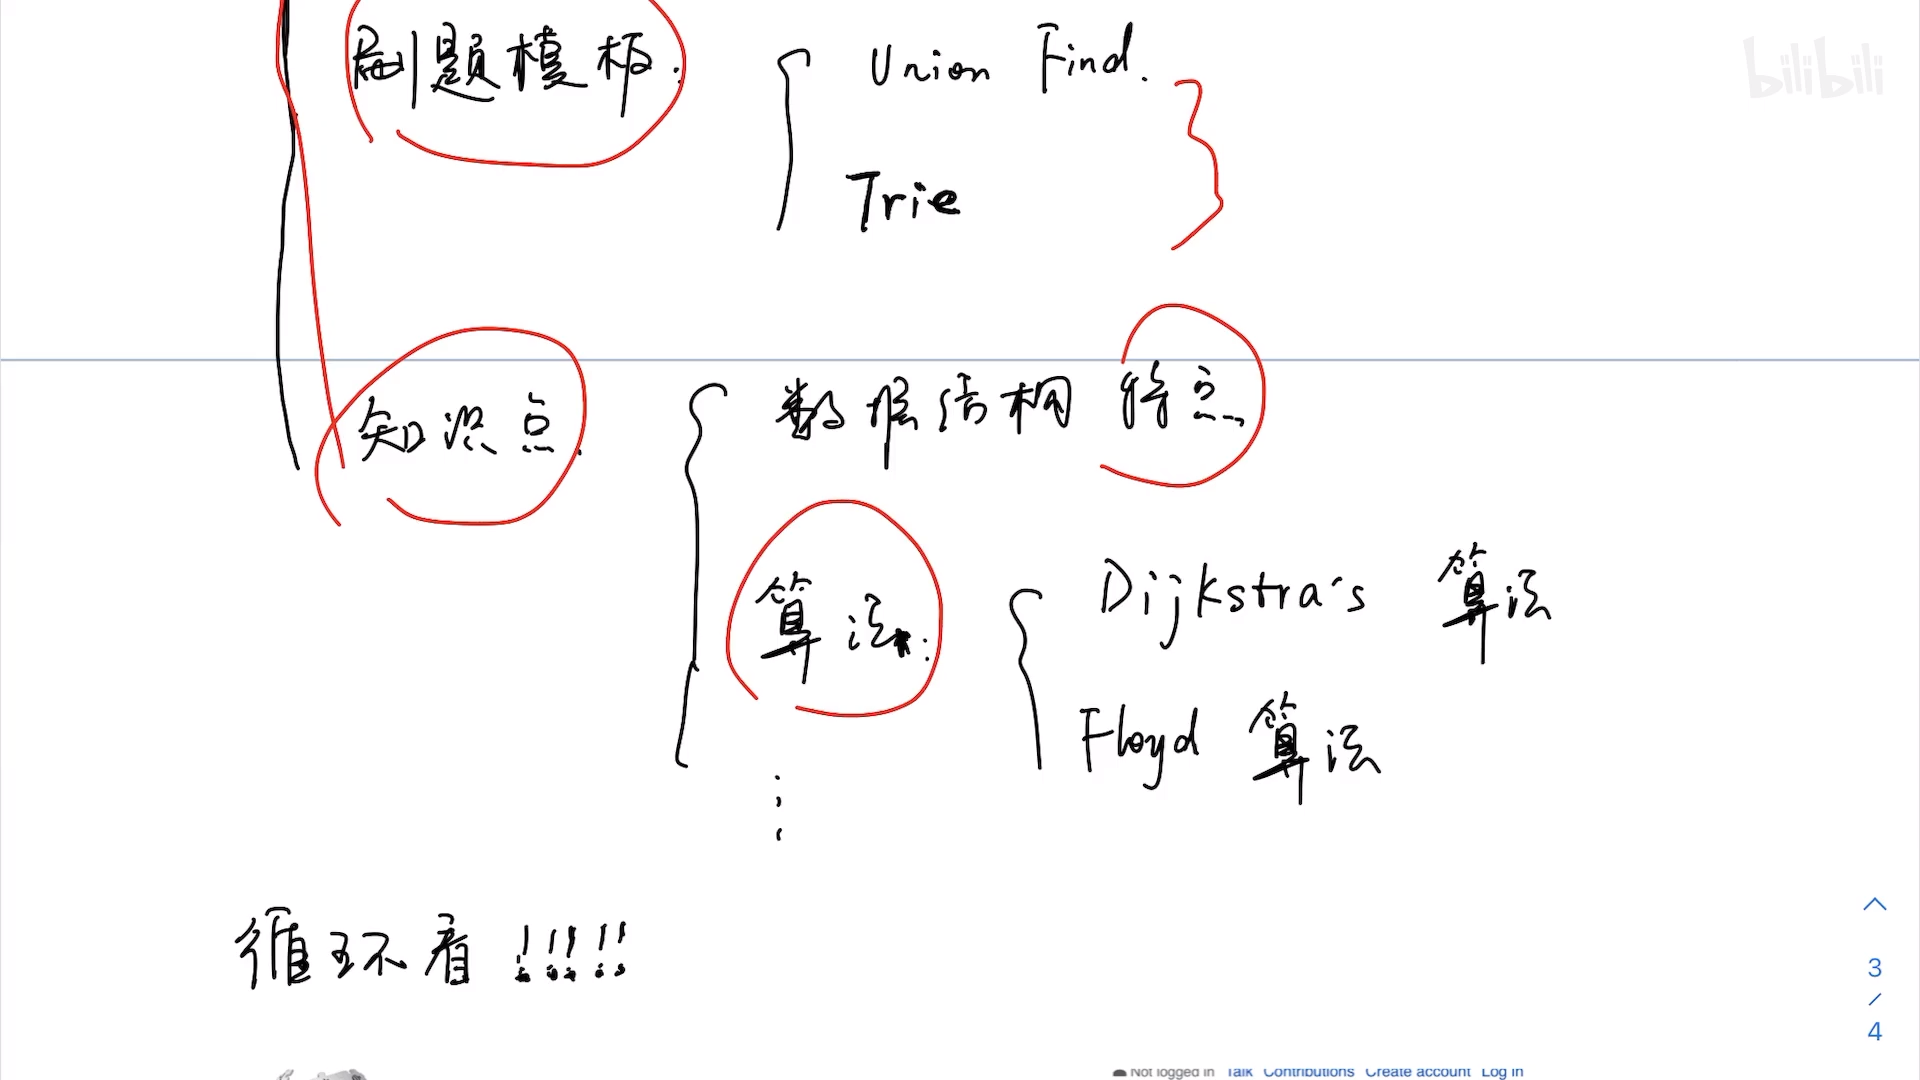 刷题模板:
Union Find.
Trie
知识点.
数据结构 特点
算法:
Dijkstra's 算法
Floyd 算法
循环看!!!!!
bilibili
3
/
4
Not logged in Talk Contributions Create account Log in